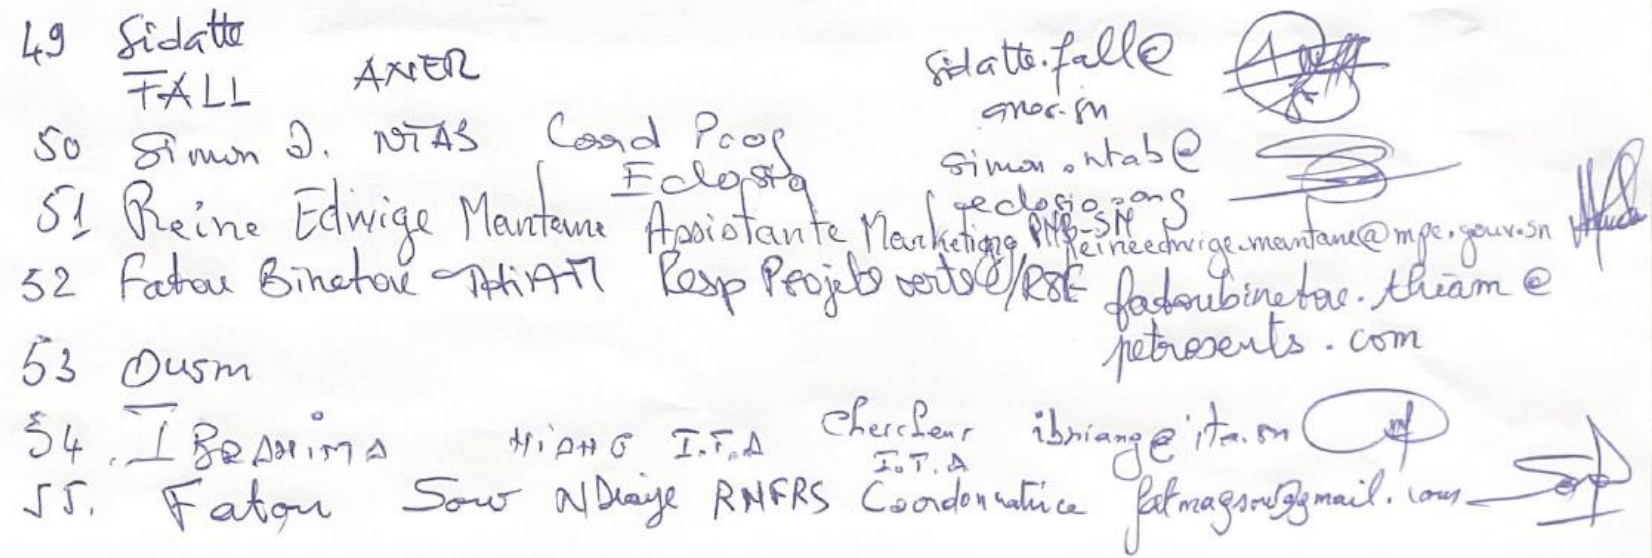 49 Sidatte FALL ANER sidatte.fall@aner.sn
50 Simon D. NTAB Coord Prog Eclosio simon.ntab@eclosio.ong
51 Reine Edwige Mantane Assistante Marketing PMB-SN reineedwige.mantane@mpe.gouv.sn
52 Fatou Binetou THIAM Resp Projets verts/RSE fatoubinetou.thiam@petrosen-ts.com
53 Ousm
54. IBRAHIMA NIANG I.T.A Chercheur I.T.A ibniang@ita.sn
55. Fatou Sow NDiaye RNFRS Coordonnatrice fatmagsow@gmail.com